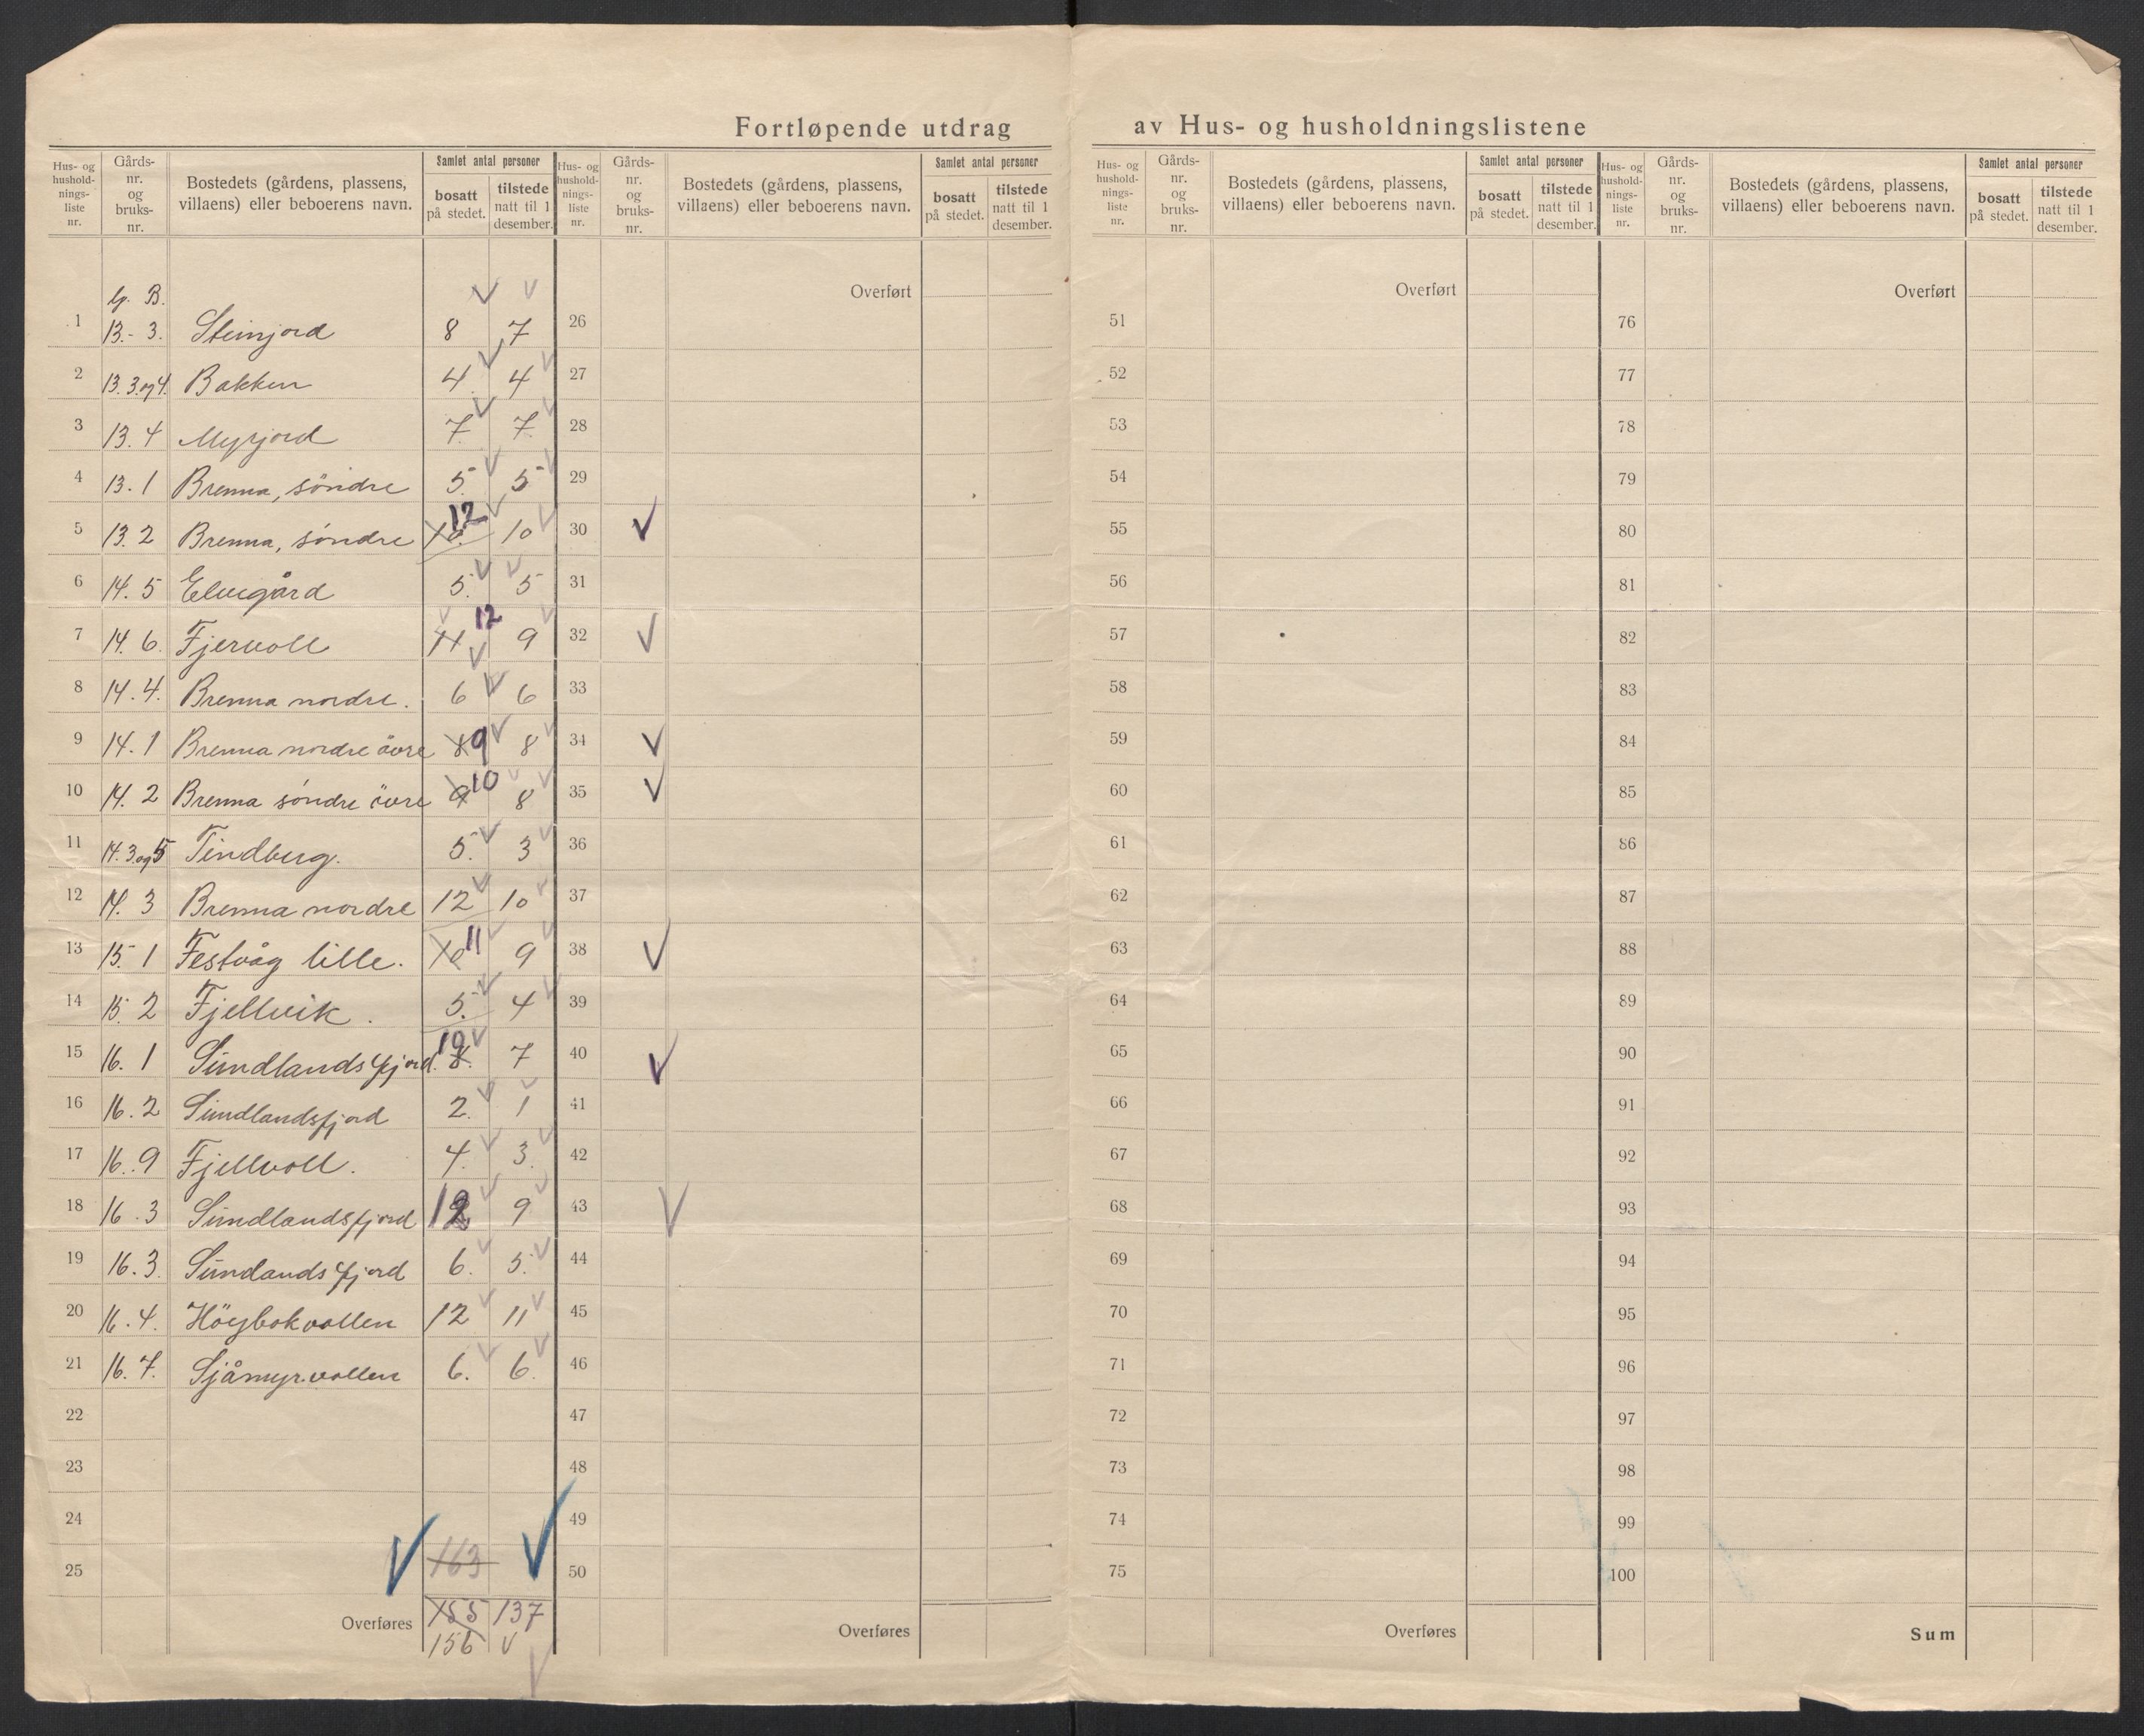 Fortløpende utdrag av Hus- og husholdningslistene
Hus- og hushold-nings-liste nr. Gårds-nr. og bruks-nr. Bostedets (gårdens, plassens, villaens) eller beboerens navn. Samlet antal personer bosatt på stedet. tilstede natt til 1 desember.
Hus- og hushold-nings-liste nr. Gårds-nr. og bruks-nr. Bostedets (gårdens, plassens, villaens) eller beboerens navn. Samlet antal personer bosatt på stedet. tilstede natt til 1 desember.
Hus- og hushold-nings-liste nr. Gårds-nr. og bruks-nr. Bostedets (gårdens, plassens, villaens) eller beboerens navn. Samlet antal personer bosatt på stedet. tilstede natt til 1 desember.
Hus- og hushold-nings-liste nr. Gårds-nr. og bruks-nr. Bostedets (gårdens, plassens, villaens) eller beboerens navn. Samlet antal personer bosatt på stedet. tilstede natt til 1 desember.
G. B. Overført Overført Overført
1 13.- 3. Steinjord 8 7 26 51 76
2 13. 3 og 4. Bakken 4 4 27 52 77
3 13. 4 Myrjord 7. 7. 28 53 78
4 13. 1 Brenna, söndre 5. 5 29 54 79
5 13. 2 Brenna, söndre 12 10 30 55 80
6 14. 5 Elvegård 5. 5 31 56 81
7 14. 6. Fjervoll 11 12 9 32 57 82
8 14. 4. Brenna nordre. 6 6 33 58 83
9 14. 1 Brenna nordre övre 8 9 8 34 59 84
10 14. 2 Brenna söndre övre 9 10 8 35 60 85
11 14. 3 og 5 Tindberg. 5. 3 36 61 86
12 14. 3 Brenna nordre 12 10 37 62 87
13 15. 1 Festvåg lille. 10 11 9 38 63 88
14 15. 2 Fjellvik. 5. 4 39 64 89
15 16. 1 Sundlandsfjord. 8. 10 7 40 65 90
16 16. 2 Sundlandsfjord 2. 1 41 66 91
17 16. 9 Fjellvoll. 4. 3. 42 67 92
18 16. 3 Sundlandsfjord 12 9 43 68 93
19 16. 3. Sundandsfjord 6. 5. 44 69 94
20 16. 4. Höybakvollen 12 11 45 70 95
21 16. 7. Sjåmyrvollen 6. 6. 46 71 96
22 47 72 97
23 48 73 98
24 49 74 99
25 163 50 75 100
Overføres 155 137 Overføres Overføres Sum
156